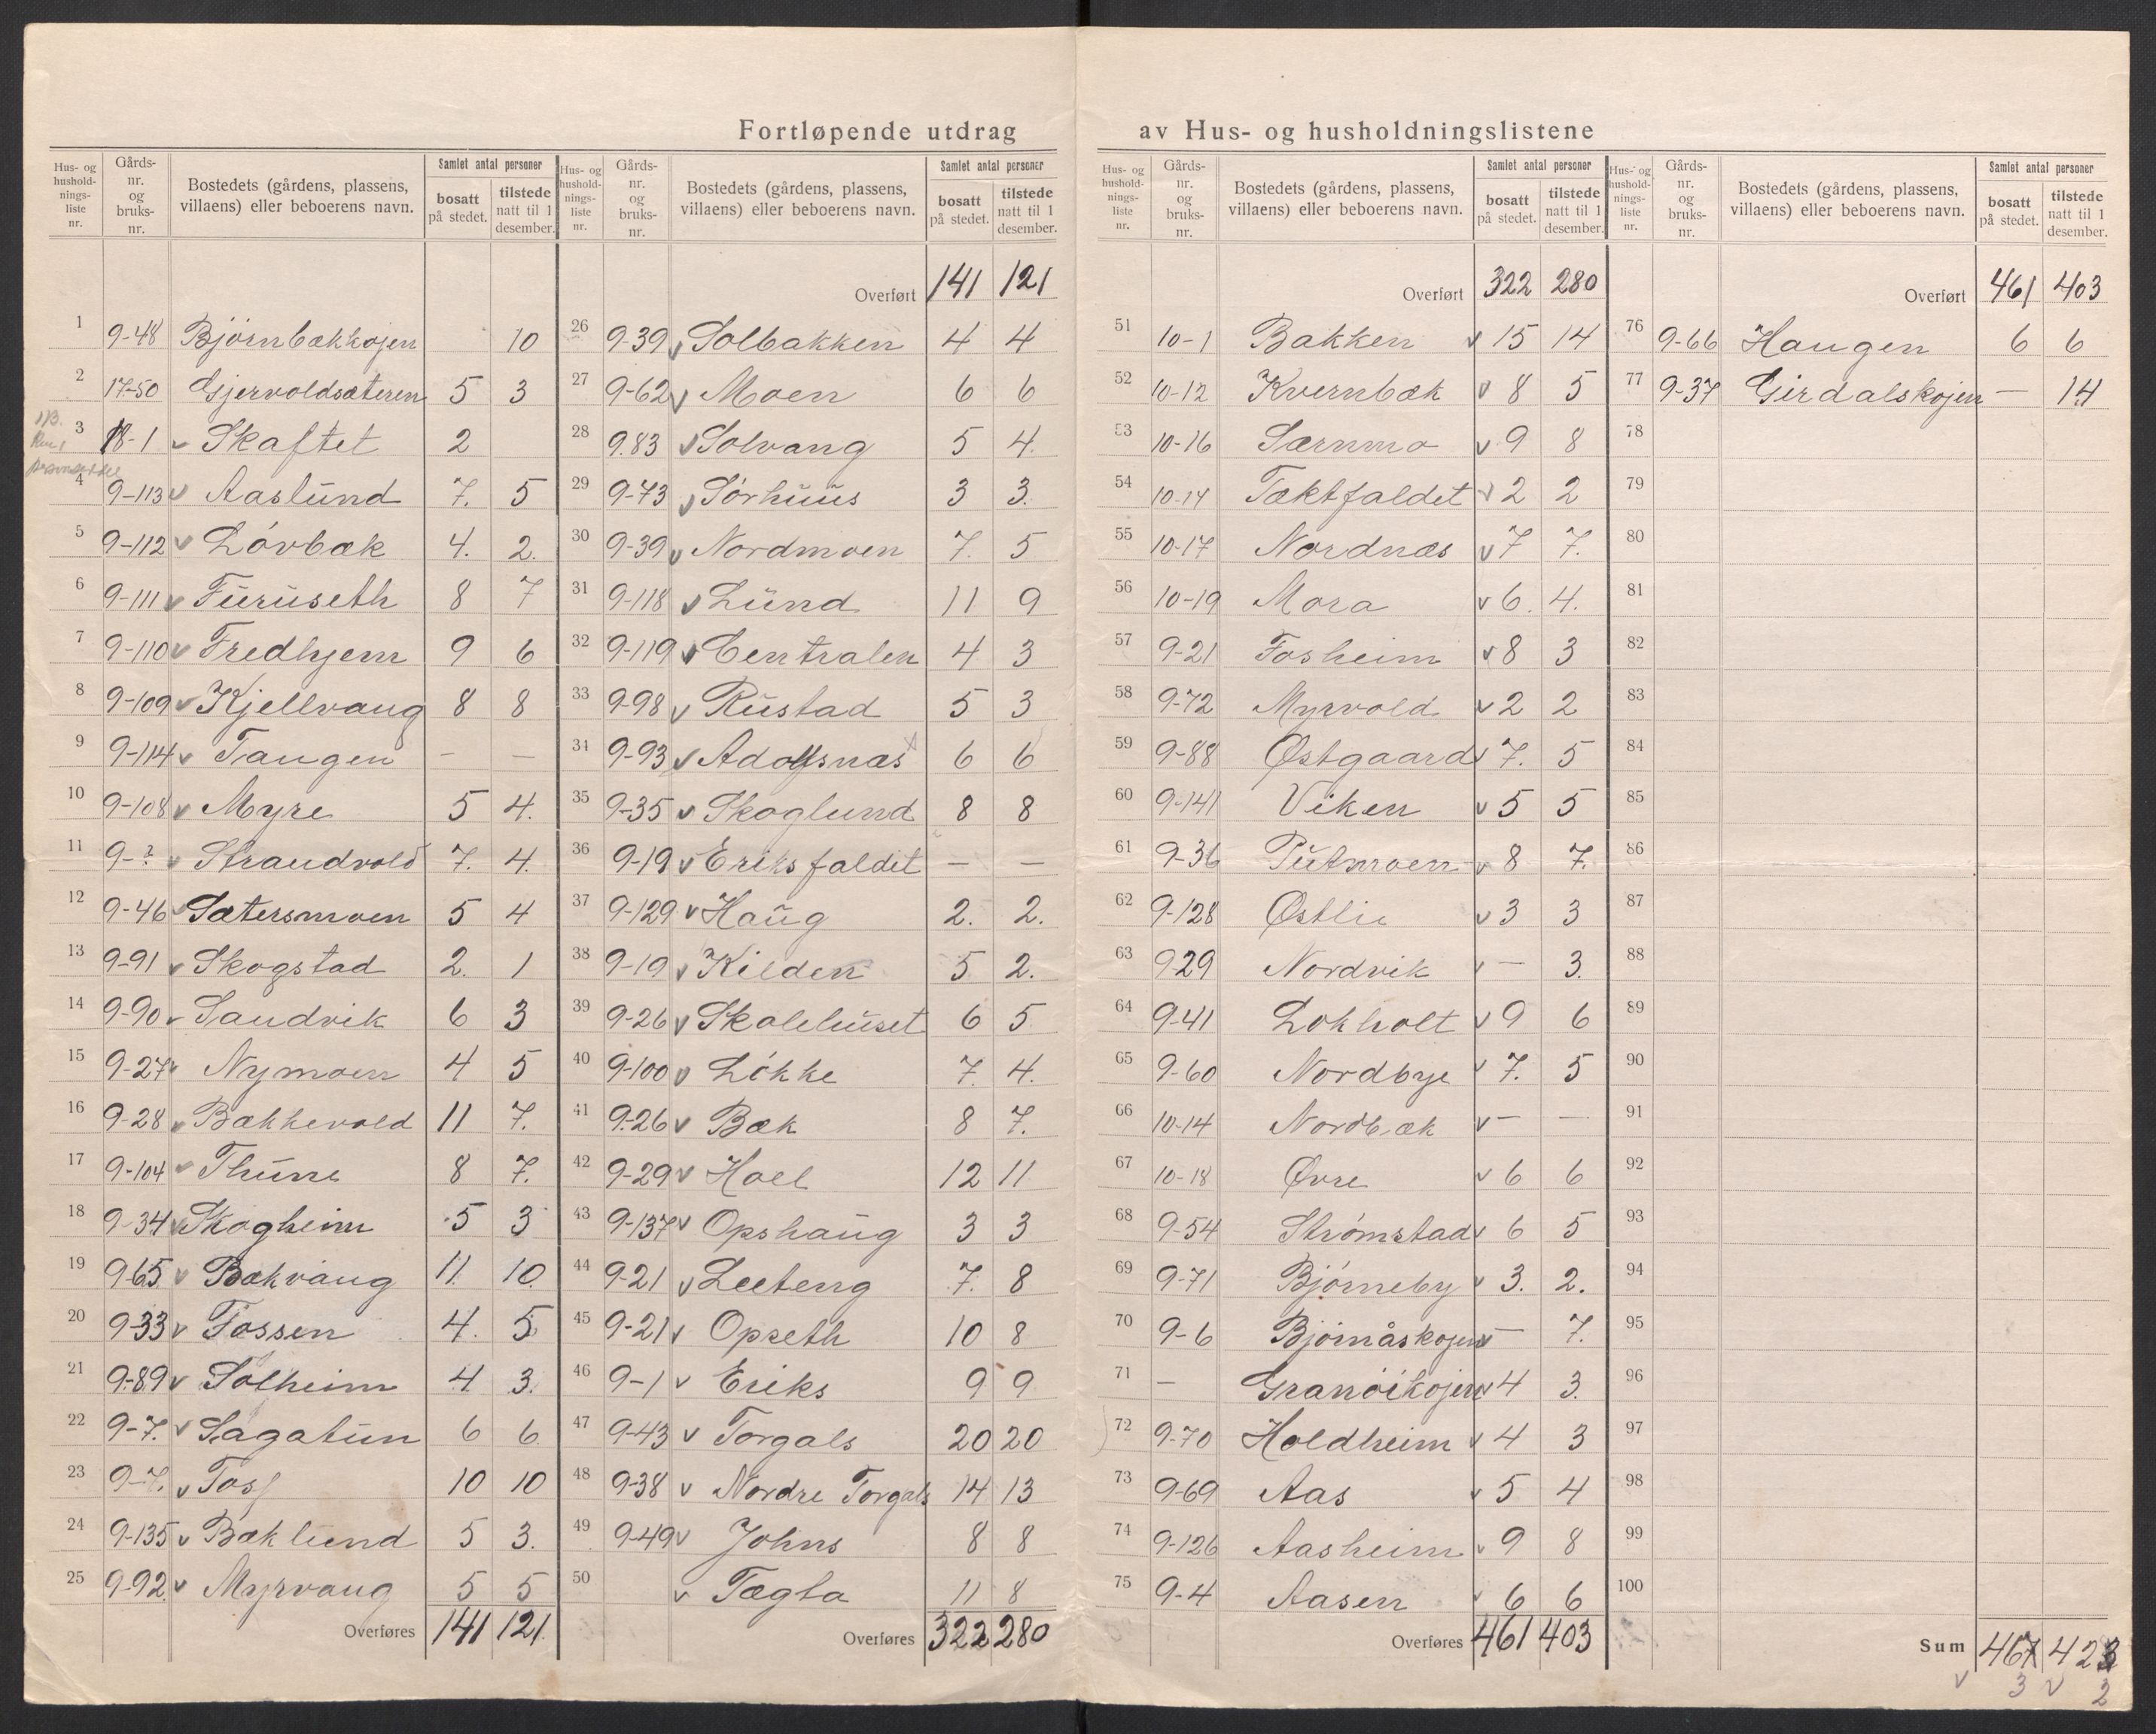 Fortløpende utdrag av Hus- og husholdningslistene
Hus- og husholdnings-liste nr. | Gårds-nr. og bruks-nr. | Bostedets (gårdens, plassens, villaens) eller beboerens navn. | Samlet antal personer | bosatt på stedet. | tilstede natt til 1 desember.
1 9-48 Bjørnbækkojen 10
2 17-50 Gjervoldsæteren 5 3
3 18-1 v Skaftet 2
4 9-113 v Aaslund 7. 5
5 9-112 v Lövbæk 4. 2.
6 9-111 v Furuseth 8 7
7 9-110 v Fredhjem 9 6
8 9-109 v Kjellvang 8 8
9 9-114 v Tangen — —
10 9-108 v Myre 5 4.
11 9-? v Strandvold 7. 4.
12 9-46 v Sætersmoen 5 4
13 9-91 v Skogstad 2. 1
14 9-90 v Sandvik 6 3
15 9-27 v Nymoen 4 5
16 9-28 v Bækkevold 11 7.
17 9-104 v Thune 8 7.
18 9-34 v Skogheim 5 3
19 9-65 v Bækvang 11. 10.
20 9-33 v Fossen 4. 5
21 9-89 v Solheim 4 3.
22 9-7. v Sagatun 6 6
23 9-7. v Foss 10 10
24 9-135 v Bæklund 5 3.
25 9-92 v Myrvang 5 5
Overføres 141 121.
Hus- og husholdnings-liste nr. | Gårds-nr. og bruks-nr. | Bostedets (gårdens, plassens, villaens) eller beboerens navn. | Samlet antal personer | bosatt på stedet. | tilstede natt til 1 desember.
Overført 141 121
26 9-39 v Solbakken 4 4
27 9-62 v Moen 6 6
28 9.83 v Solvang 5 4.
29 9-73 v Sørhuus 3 3.
30 9-39 v Nordmoen 7. 5
31 9-118 v Lund 11 9
32 9-119 v Centralen 4 3
33 9-98 v Rustad 5 3
34 9-93 v Adolfsnæs 6 6
35 9-35 v Skoglund 8 8
36 9-19 v Eriksfaldet — —
37 9-129 v Haug 2. 2.
38 9-19 v Kilden 5 2.
39 9-26 v Skolehuset 6 5
40 9-100 v Lökke 7. 4.
41 9-26 v Bæk 8 7.
42 9-29 v Hoel 12 11
43 9-137 v Opshaug 3 3
44 9-21 v Leeteng 7. 8
45 9-21 v Opseth 10 8
46 9-1 v Eriks 9 9
47 9-43 v Torgals 20 20
48 9-38 v Nordre Torgals 14 13
49 9-49 v Johns 8 8
50 v Tægta 11 8
Overføres 322 280
Hus- og husholdnings-liste nr. | Gårds-nr. og bruks-nr. | Bostedets (gårdens, plassens, villaens) eller beboerens navn. | Samlet antal personer | bosatt på stedet. | tilstede natt til 1 desember.
Overført 322 280
51 10-1 Bakken v 15 14
52 10-12 Kvernbæk v 8 5
53 10-16 Særnmo v 9 8
54 10-14 Tæktfaldet v 2 2
55 10-17 Nordnæs v 7 7.
56 10-19 Mora v 6. 4.
57 9-21 Fosheim v 8 3
58 9-72 Myrvold v 2 2
59 9-88 Østgaard v 7. 5
60 9-141 Viken v 5 5
61 9-36 Putmoen v 8 7.
62 9-128 Østlie v 3 3
63 9-29 Nordvik v — 3.
64 9-41 Lokholt v 9 6
65 9-60 Nordbye v 7. 5
66 10-14 Nordbæk v — —
67 10-18 Øvre v 6 6
68 9-54 Strömstad v 6 5
69 9-71 Björneby v 3. 2.
70 9-6 Björnåskojen v — 7.
71 — Granöikojen v 4 3.
72 9-70 Holdheim v 4 3
73 9-69 Aas v 5 4
74 9-126 Aasheim v 9 8
75 9-4 Aasen v 6 6
Overføres 461 403
Hus- og husholdnings-liste nr. | Gårds-nr. og bruks-nr. | Bostedets (gårdens, plassens, villaens) eller beboerens navn. | Samlet antal personer | bosatt på stedet. | tilstede natt til 1 desember.
Overført 461 403
76 9-66 Haugen 6 6
77 9-37 Girdalskojen — 14
78
79
80
81
82
83
84
85
86
87
88
89
90
91
92
93
94
95
96
97
98
99
100
Sum 467 423
v 3 v 2